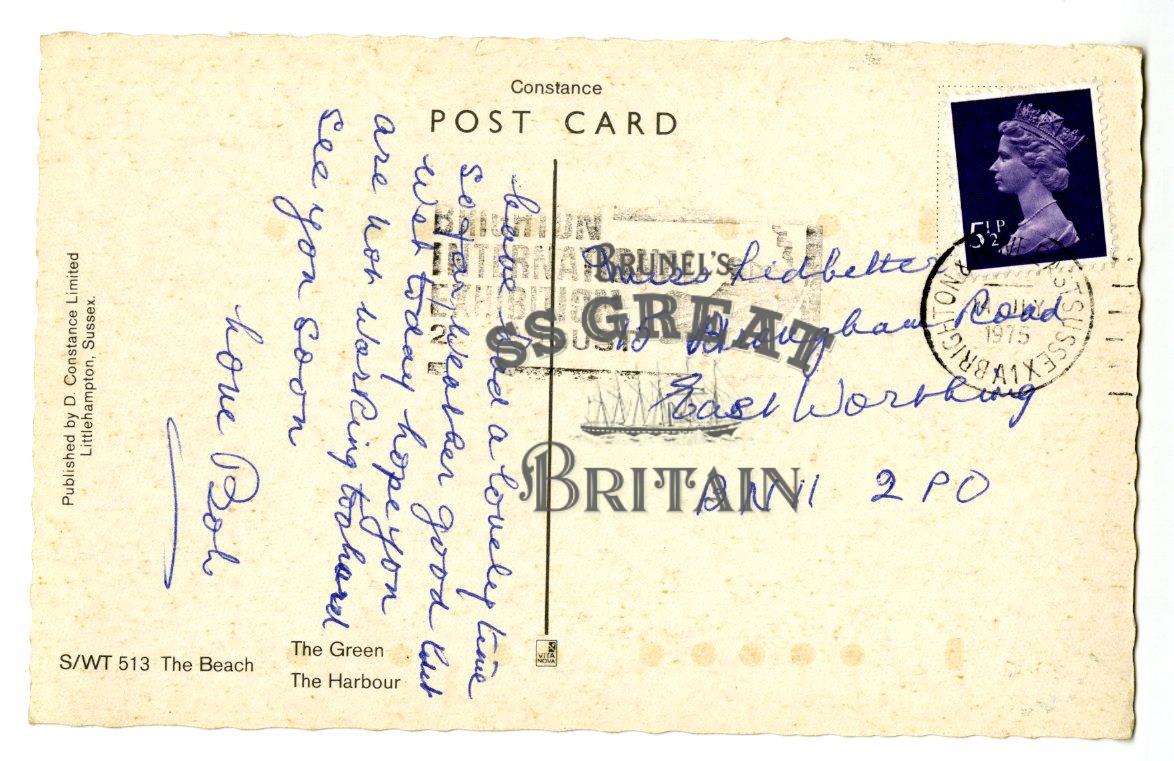 Constance
POST CARD
have had a lovely time
so far weather good but
wet today hope you
are not working to hard
see you soon
love Bob
Miss Ledbetter
Road
East Worthing
BN11 2PO
5½P
BRIGHTON
INTERNATIONAL
EXHIBITION
BRIGHTON
EAST SUSSEX
JLY
1975
A
BRUNEL'S
SS GREAT
BRITAIN
Published by D. Constance Limited
Littlehampton, Sussex.
S/WT 513 The Beach
The Green
The Harbour
VITA
NOVA